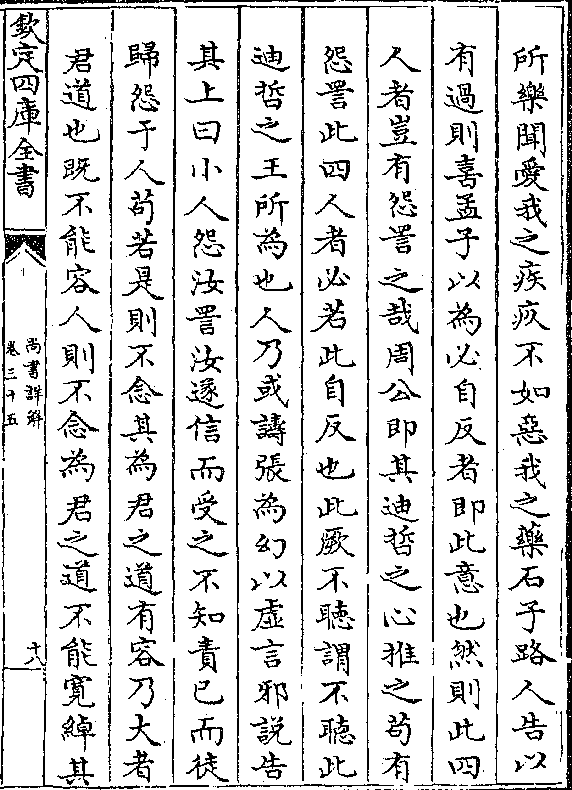 所樂聞愛我之疾疢不如惡我之藥石子路人告以
有過則喜孟子以為必自反者即此意也然則此四
人者豈有怨詈之哉周公即其迪哲之心推之苟有
怨詈此四人者必若此自反也此厥不聽謂不聽此
迪哲之王所為也人乃或譸張為幻以虛言邪說告
其上曰小人怨汝詈汝遂信而受之不知責已而徒
歸怨于人苟若是則不念其為君之道有容乃大者
君道也既不能容人則不念為君之道不能寛綽其
欽定四庫全書
尚書詳解
卷三十五
十八